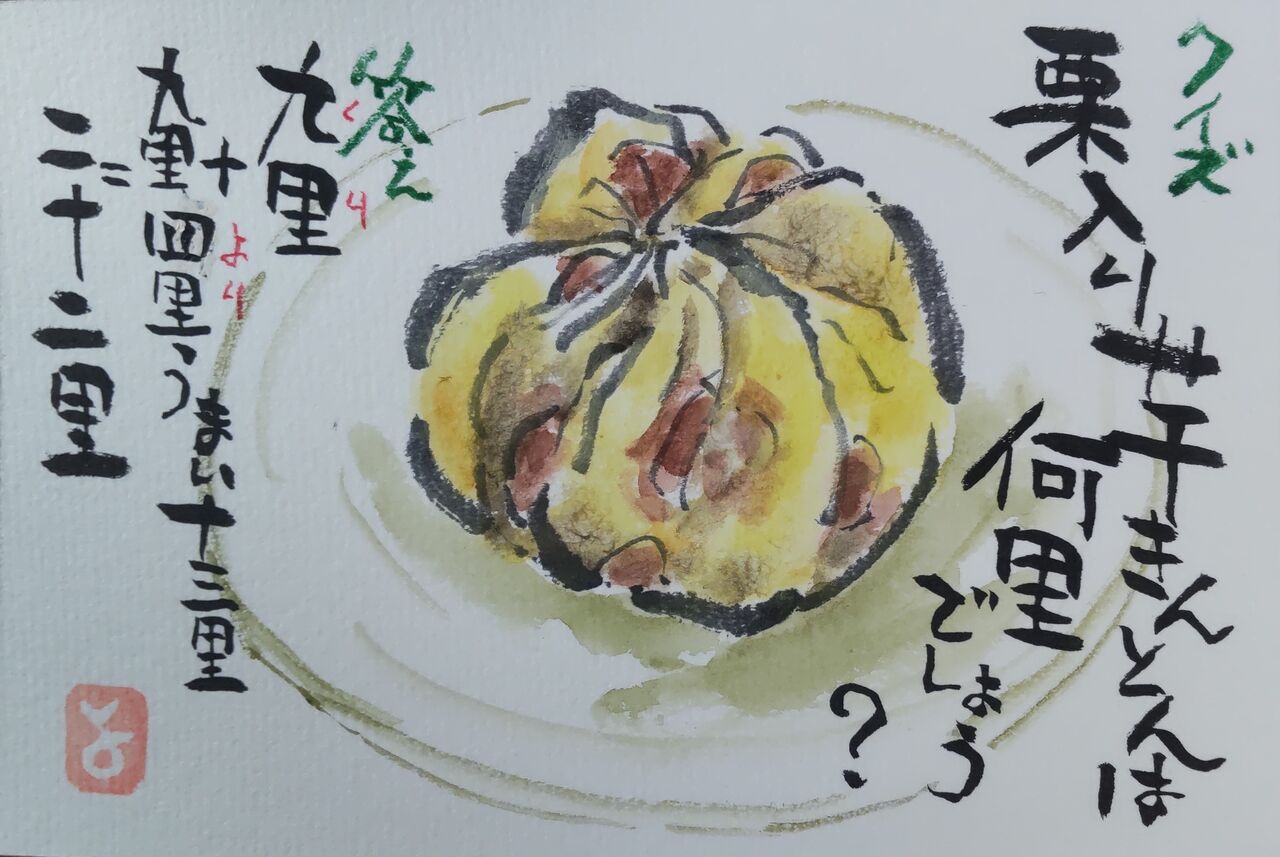 クイズ
栗入り芋きんとんは
何里
でしょう
?
答え
九里
くり
九里+四里う
より
まい十三里
二十二里
と